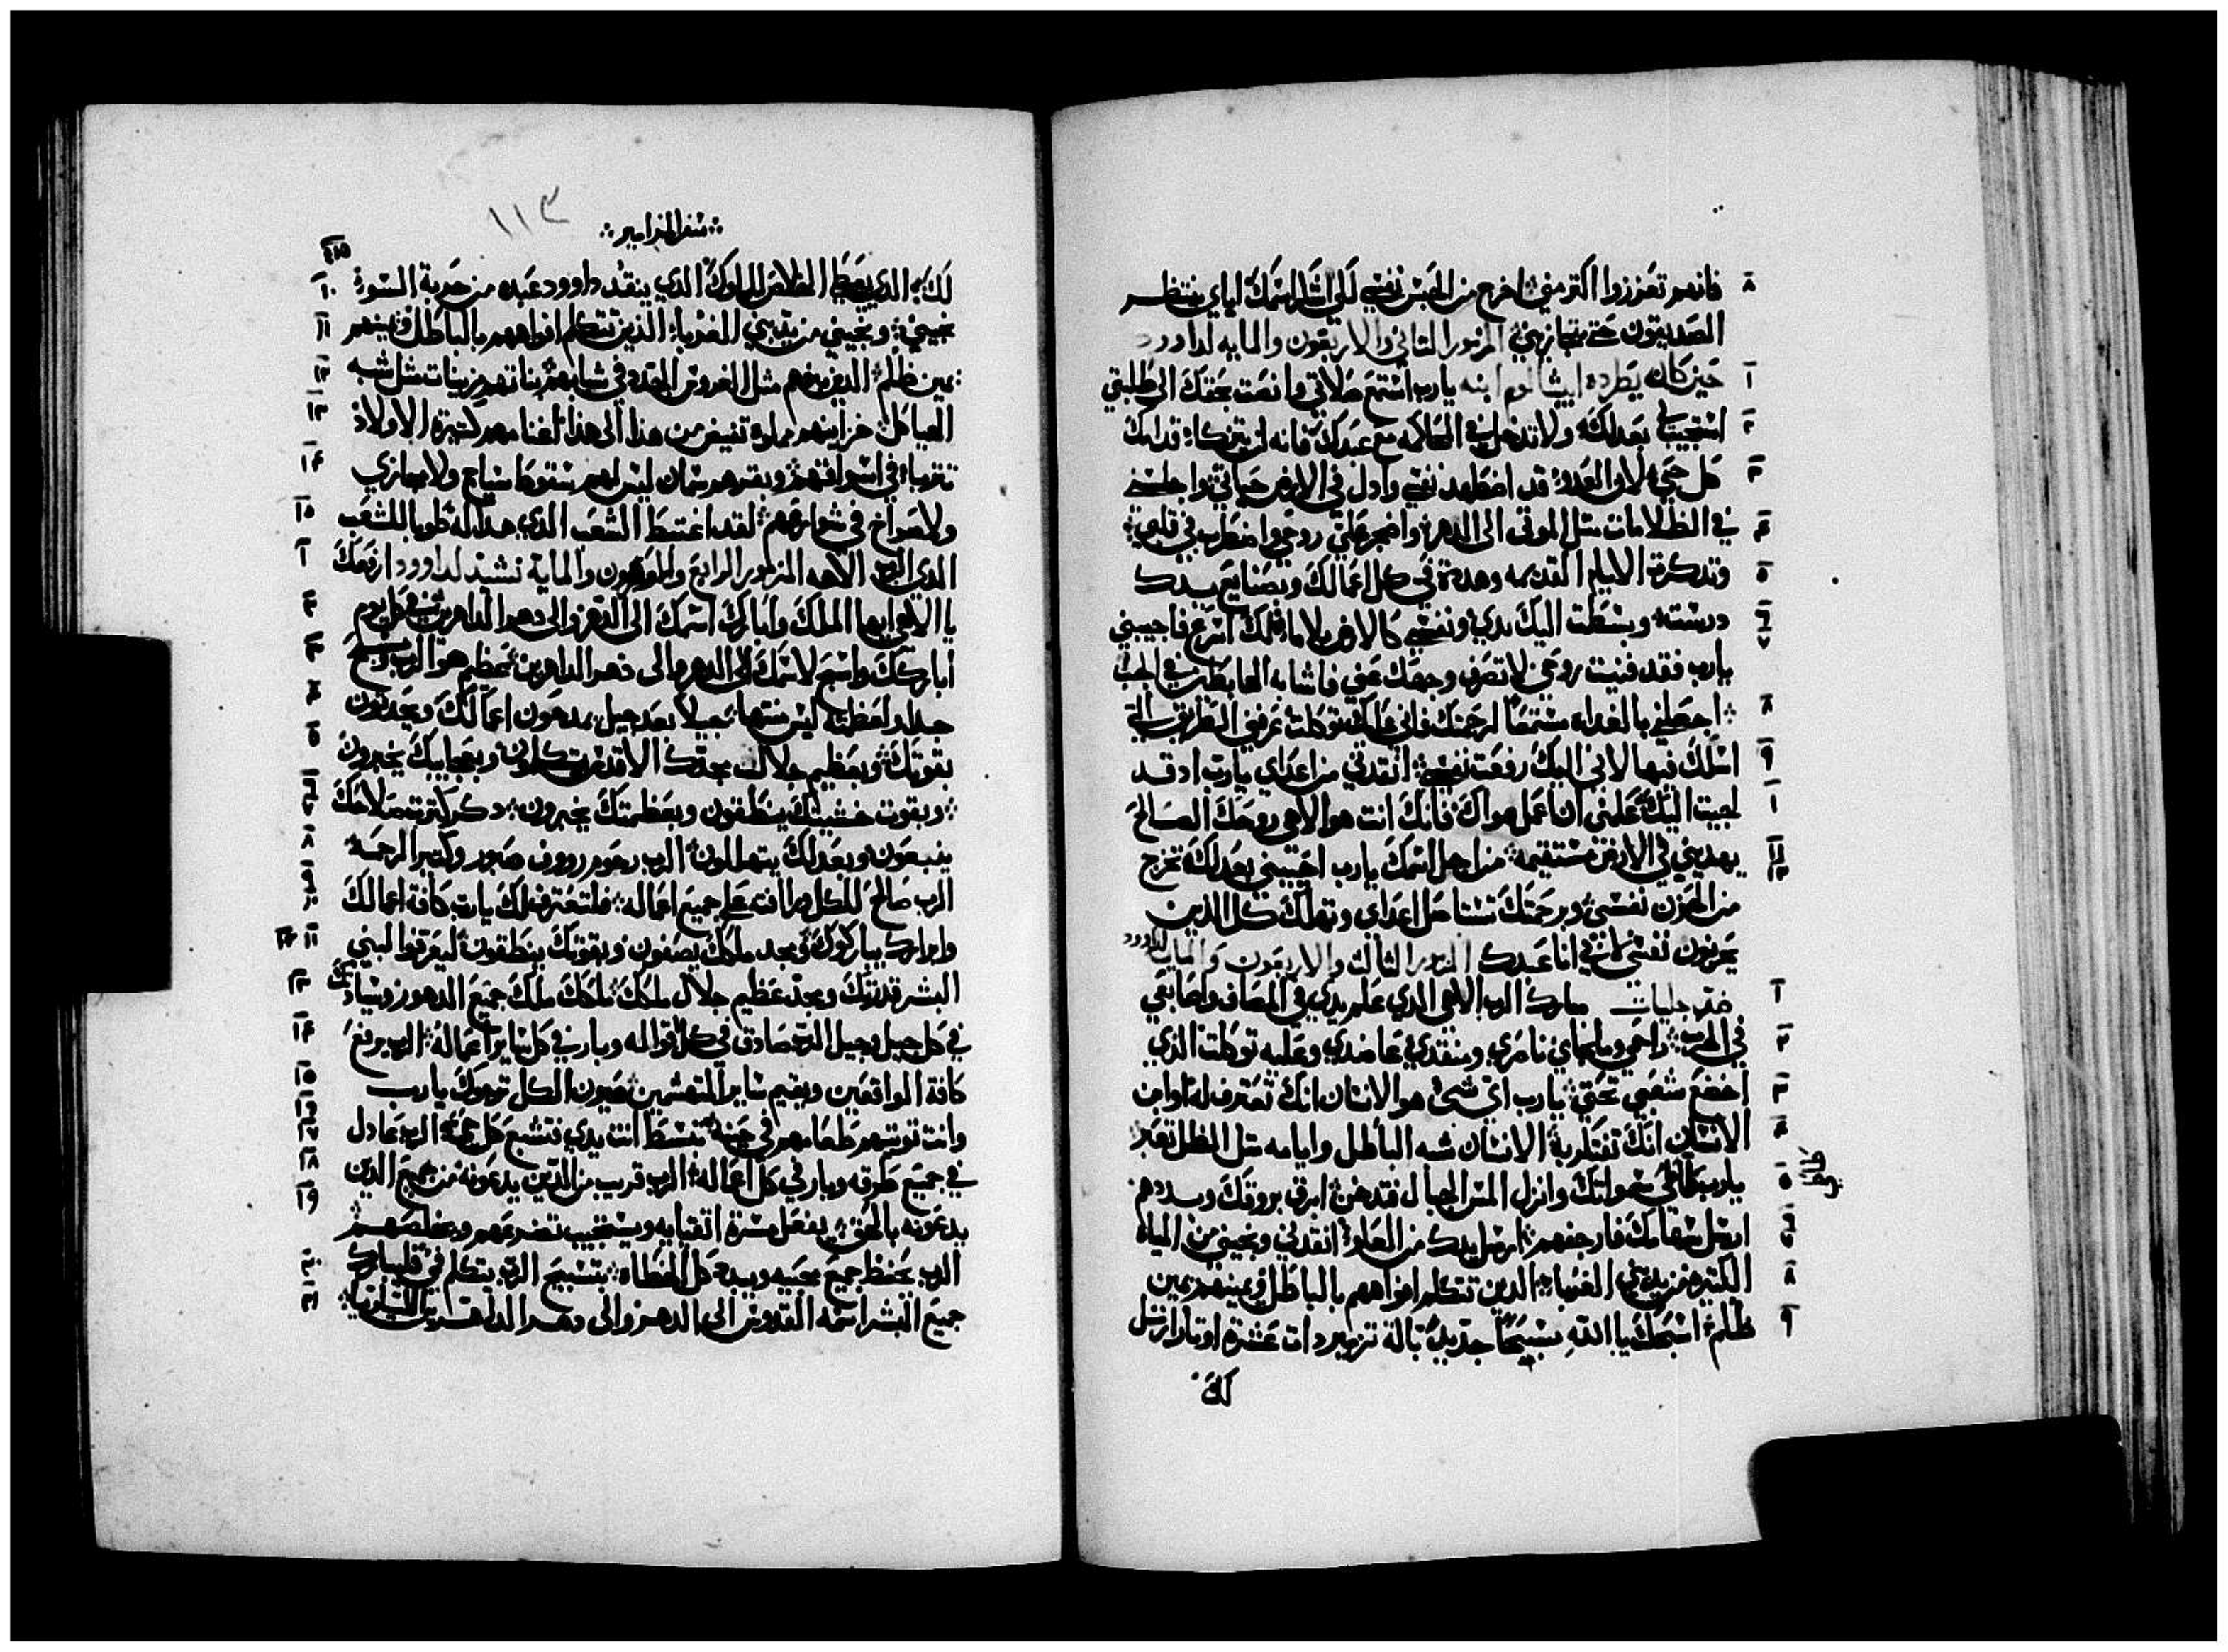 ٨ فانهم تعززوا اكتر مني اخرج من الحبس نفسي لكي اشكر اسمك اياي ينتظر
الصديقون حتى تجازيني المزمور التاني والاربعون والمايه لداوود
١ حين كان يطرده ابيشالوم ابنه يارب استمع صلاتي وانصت بحقك الى طلبتي
٢ استجيب لي بعدلك ولا تدخل في المحاكمه مع عبدك فانه لن يتزكا قدامك
٣ كل حي لان العدو قد اضطهد نفسي وادل في الارض حياتي واجلسني
٤ في الظلامات متل الموتى الى الدهر واضجر علي روحي واضطرب في قلبي
٥ وتدكرت الايام القديمه وهديت في كل اعمالك وبصنايع يديك
٦ درست وبسطت اليك يدي ونفسي كالارض بلا ما لك اسرع فاجيبني
٧ يارب فقد فنيت روحي لا تصرف وجهك عني فاشابه الهابطين في الجب
٨ اجعلني بالغداه مستمعا لرحمتك فاني عليك توكلت عرفني الطريق التي
٩ اسلك فيها لاني اليك رفعت نفسي انقدني من اعداي يارب اد قد
١٠ لجيت اليك علمني ان اعمل هواك فانك انت هو الاهي روحك الصالح
١١ يهديني في الارض مستقيمه من اجل اسمك يارب احييني بعدلك تخرج
١٢ من الحزن نفسي وبرحمتك تستاصل اعداي وتهلك كل الدين
يحزنون نفسي لاني انا عبدك المزمور التالت والاربعون والمايه لداوود
١ ضد جليات مبارك الرب الاهي الدي علم يدي في المصاف واصابعي
٢ في الحرب راحمي وملجاي ناصري ومنقدي عاضدي وعليه توكلت الدي
٣ اخضع شعبي تحتي يارب اي شي هو الانسان انك تعترف له او ابن
٤ الانسان انك تفتكر به الانسان شبه الباطل وايامه متل الظل تعبر
٥ يارب طاطي سمواتك وانزل المس الجبال فتدخن ابرق بروقك وبددهم
٦ ارسل سهامك فارجفهم ارسل يدك من العلو انقدني ونجيني من المياه
٨ الكتيره من يدي الغربا الدين تتكلم افواههم بالباطل ويمينهم يمين
٩ ظلم اسبحك يا الله تسبيحا جديدا بالة تزمير دات عشرة اوتار ارتل
لك
سفر المزامير
١١٣
١٠ لك الدي يعطي الخلاص للملوك الدي ينقد داوود عبده من حربة السو
١١ نجيني ونجيني من يدي الغربا الدين تتكلم افواههم بالباطل ويمينهم
١٢ يمين ظلم الدين بنوهم متال الغروس الجدد في شبابهم بناتهم مزينات متل شبه
١٣ الهياكل خزاينهم مملوه تفيض من هدا الى هدا اغنامهم كتيرة الاولاد
١٤ في اسواقهم وبقرهم سمان ليس لهم سقوط سياج ولا مجازي
١٥ ولا صراخ في شوارعهم لقد اغتبط الشعب الدي هدا له طوبا للشعب
١ الدي الرب الاهه المزمور الرابع والاربعون والماية تشيد لداوود ارفعك
٢ يا الاهي ايها الملك وابارك اسمك الى الدهر والى دهر الداهرين في كل يوم
٣ اباركك واسبح لاسمك الى الدهر والى دهر الداهرين عظيم هو الرب ومسبح
٤ جدا ولعظمته ليس منتها جيلا بعد جيل يمدحون اعمالك ويحدتون
٥ بقوتك وبعظيم جلالك بمجدك الاقدس يتكلمون وبعجايبك يخبرون
٦ وبقوت خشيتك ينطقون وبعظمتك يخبرون دكر كترة صلاحك
٨ ينبعون وبعدلك يتهللون الرب رحوم رووف صبور وكتير الرحمه
٩ الرب صالح للكل ورافته على جميع اعماله فلتعترف لك يارب كافة اعمالك
١١ ١٢ وابرارك يباركوك وبمجد ملكك يصفون وبقوتك ينطقون ليعرفوا لبني
١٣ البشر قدرتك وبمجد عظيم جلال ملكك ملكك ملك جميع الدهور وسيادتك
١٤ في كل جيل وجيل الرب صادق في كل اقواله وبار في كل ساير اعماله الرب يرفع
١٥ كافة الواقعين ويقيم ساير المتهشمين عيون الكل ترجوك يارب
١٦ ١٧ وانت توتيهم طعامهم في حينه تبسط انت يدي فتشبع كل حي الرب عادل
١٨ في جميع طرقه وبار في كل اعماله الرب قريب من الدين يدعونه من جميع الدين
١٩ يدعونه بالحق يفعل مسرة اتقيايه ويستجيب تضرعهم ويخلصهم
٢٠ الرب يحفظ جميع محبيه ويبيد كل الخطاه بتسبيح الرب يتكلم في فليبارك
٢١ جميع البشر اسمه القدوس الى الدهر والى دهر الداهرين